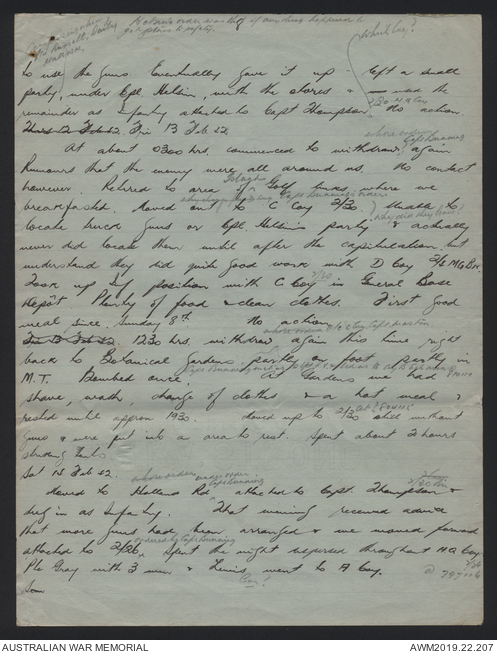 to use the guns. Eventually gave it up - left a small
party, under Cpl. Hellin, with the stores & used the
remainder as Infantry attached to Capt Thompson. No action.
Thurs 12 Feb 42. Fri 13 Feb 42
At about 0300 hrs. commenced to withdraw again
Rumours that the enemy were all around us. No contact
however. Retired to area of Golf links where we
breakfasted. Moved out to C Coy 2/30. Unable to
locate truck guns or Cpl. Hellins party & actually
never did locate them until after the capitulation but
understand they did quite good work with D Coy 2/4 M.G. Bn.
Took up Inf position with C Coy in General Base
Depot Plenty of food & clean clothes. First good
meal since Sunday 8th No action
Fri 13 Feb 42. 1230 hrs. withdrew again this time right
back to Botanical Gardens, partly on foot partly in
M.T. Bombed once. At Gardens we had
shave, wash, change of clothes & a hot meal &
rested until approx 1930. Moved up to 2/30 still without
guns & were put into a area to rest. Spent about 2 hours
Sat 14 Feb 42.
whose orders
Moved to Holland Rd attached to Capt. Thompson &
dug in as Infantry. That evening received advice
that more guns had been arranged & we moved forward
attached to 2/26. Spent the night dispersed throughout HQ Coy
Pte Gray with 3 men & Lewis went to A Coy.
Coy?
AUSTRALIAN WAR MEMORIAL
AWM2019.22.207